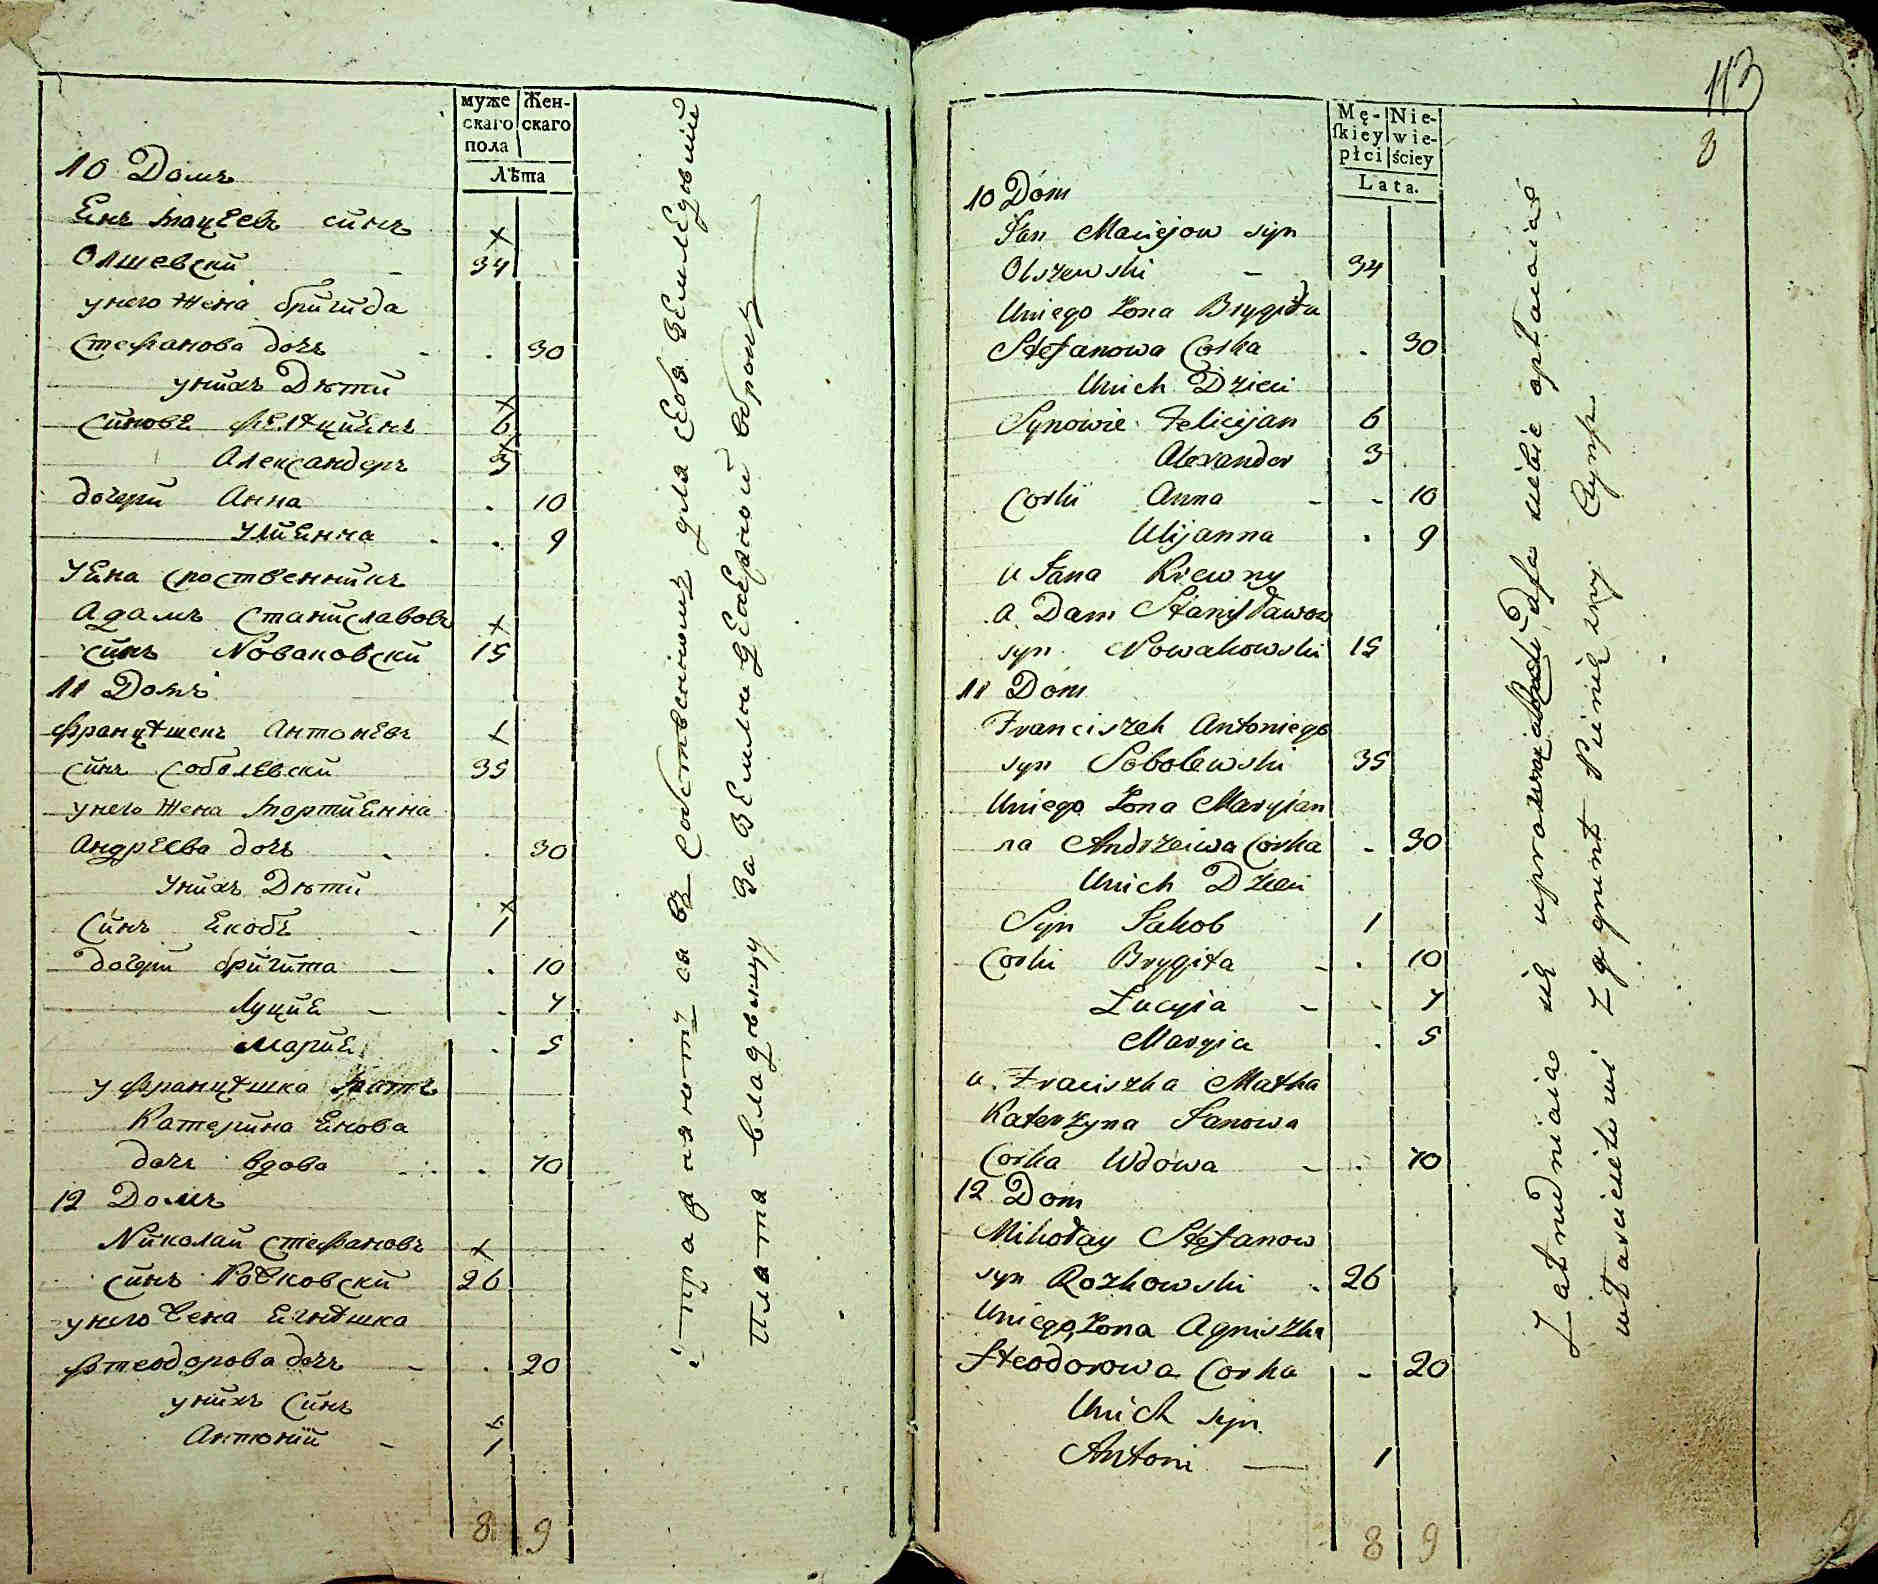 муже Жен-
скаго скаго
пола
Лѣта
10 Домъ
Енъ Мацеевъ синъ
Олшевски - 34
унего жена бригида
Стефанова дочъ - . 30
унихъ Дѣти
синовѣ Фелѣциенъ 6
Александеръ 3
дочери Анна . 10
Улиенна . . 9
УЕна сроственникъ
Адамъ Станиславовъ
синъ Новаковски 15
11 Домъ
Францѣшекъ Антонѣвъ
синъ Соболевски 35
унего жена Мариенна
Андреева дочъ . . 30
Унихъ Дѣти
Синъ Екобъ - 1
дочери бригита - . 10
Луцие - . 7
Марие . 5
у Францѣшка Матъ
Катерина Енова
дочъ вдова . 70
12 Домъ
Николаи Стефановъ
синъ Рожковски 26
унего жена Егнѣшка
Фтеодорова дочъ - . 20
унихъ Синъ
Антоний - 1
8 9
платa владѣльцу За Землю
113
8
Mę- Nie-
skiey wie-
płci ściey
Lata.
10 Dom
Jan Maciejow syn
Olszewski - 34
Uniego Żona Brygita
Stefanowa Corka . 30
Unich Dzieci
Synowie Felicyjan 6
Alexander 3
Corki Anna - - 10
Ulijanna . 9
u Jana Krewny
a Dam Stanisławow
syn Nowakowski 15
11 Dom
Franciszek Antoniego
syn Sobolewski 35
Uniego Żona Maryjan
na Andrzeiwa Corka - 30
Unich Dzieci
Syn Jakob 1
Corki Brygita - . 10
Łucyia - . 7
Maryia . 5
u Fraciszka Matka
Katerzyna Janowa
Corka Wdowa - . 70
12 Dom
Mikołay Stefanow
syn Rozkowski . 26
Uniego Żona Agniszka
fteodorowa Corka - 20
Unich syn
Antoni — 1
8 9
Zatrudniaia się
włascicielowi Z grunt